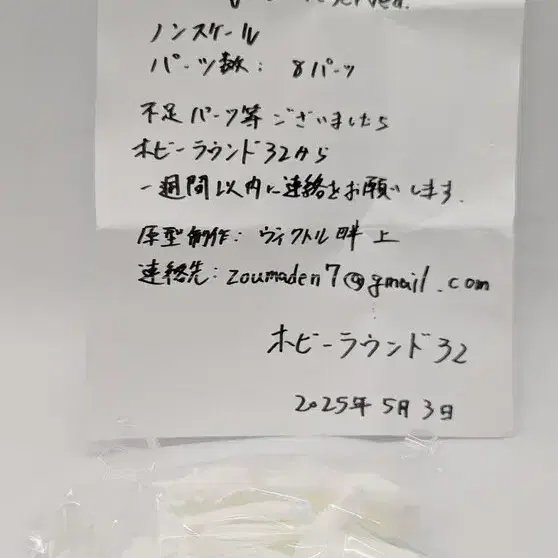 reserved.
ノンスケール
パーツ数: 8パーツ
不足パーツ等ございましたら
ホビーラウンド32から
一週間以内に連絡をお願いします.
原型制作: ヴィクトル畔上
連絡先: zoumaden7@gmail.com
ホビーラウンド32
2025年5月3日